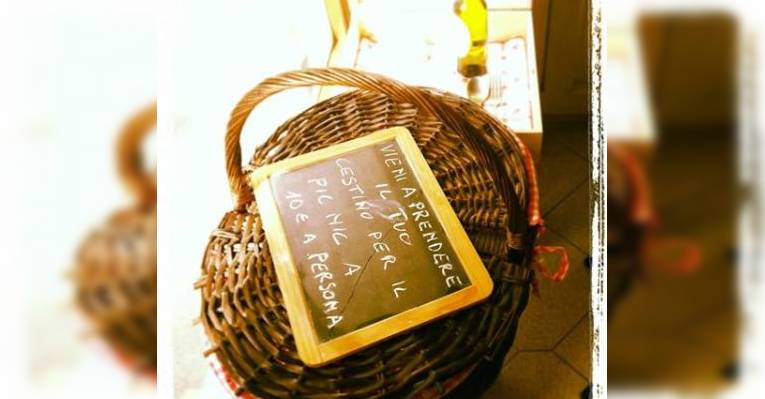 VIENI A PRENDERE
IL TUO
CESTINO PER IL
PIC NIC A
10 E A PERSONA